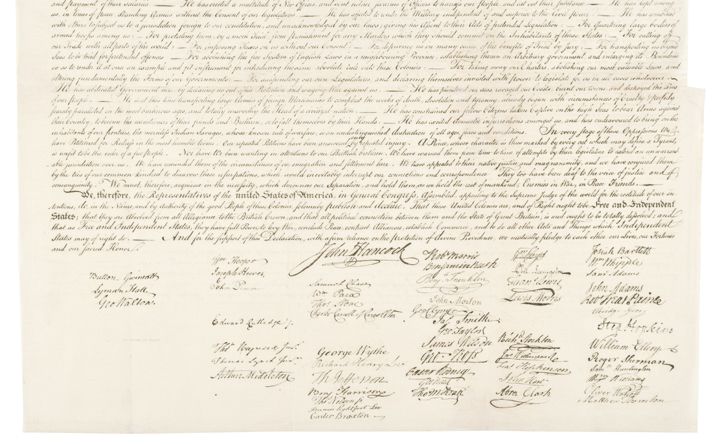 and payment of their salaries. — He has erected a multitude of New Offices, and sent hither swarms of Officers to harrass our people, and eat out their substance. — He has kept among
us, in times of peace, Standing Armies without the Consent of our legislatures. — He has affected to render the Military independent of and superior to the Civil power. — He has combined
with others to subject us to a jurisdiction foreign to our constitution, and unacknowledged by our laws; giving his Assent to their Acts of pretended Legislation: — For Quartering large bodies of
armed troops among us: — For protecting them, by a mock Trial, from punishment for any Murders which they should commit on the Inhabitants of these States: — For cutting off
our Trade with all parts of the world: — For imposing Taxes on us without our Consent: — For depriving us in many cases, of the benefits of Trial by jury: — For transporting us beyond
Seas to be tried for pretended offences: — For abolishing the free System of English Laws in a neighbouring Province, establishing therein an Arbitrary government, and enlarging its Boundaries
so as to render it at once an example and fit instrument for introducing the same absolute rule into these Colonies: — For taking away our Charters, abolishing our most valuable Laws, and
altering fundamentally the Forms of our Governments: — For suspending our own Legislatures, and declaring themselves invested with power to legislate for us in all cases whatsoever. —
He has abdicated Government here, by declaring us out of his Protection and waging War against us. — He has plundered our seas, ravaged our Coasts, burnt our towns, and destroyed the lives
of our people. — He is at this time transporting large Armies of foreign Mercenaries to compleat the works of death, desolation and tyranny, already begun with circumstances of Cruelty & perfidy
scarcely paralleled in the most barbarous ages, and totally unworthy the Head of a civilized nation. — He has constrained our fellow Citizens taken Captive on the high Seas to bear Arms against
their Country, to become the executioners of their friends and Brethren, or to fall themselves by their Hands. — He has excited domestic insurrections amongst us, and has endeavoured to bring on the
inhabitants of our frontiers, the merciless Indian Savages, whose known rule of warfare, is an undistinguished destruction of all ages, sexes and conditions. In every stage of these Oppressions We
have Petitioned for Redress in the most humble terms: Our repeated Petitions have been answered only by repeated injury. A Prince, whose character is thus marked by every act which may define a Tyrant,
is unfit to be the ruler of a free people. Nor have We been wanting in attentions to our Brittish brethren. We have warned them from time to time of attempts by their legislature to extend an unwarrantable
jurisdiction over us. We have reminded them of the circumstances of our emigration and settlement here. We have appealed to their native justice and magnanimity, and we have conjured them
by the ties of our common kindred to disavow these usurpations, which, would inevitably interrupt our connections and correspondence. They too have been deaf to the voice of justice and of
consanguinity. We must, therefore, acquiesce in the necessity, which denounces our Separation, and hold them, as we hold the rest of mankind, Enemies in War, in Peace Friends. —
We, therefore, the Representatives of the united States of America, in General Congress, Assembled, appealing to the Supreme Judge of the world for the rectitude of our in-
tentions, do, in the Name, and by Authority of the good People of these Colonies, solemnly publish and declare, That these United Colonies are, and of Right ought to be Free and Independent
States; that they are Absolved from all Allegiance to the British Crown, and that all political connection between them and the State of Great Britain, is and ought to be totally dissolved; and
that as Free and Independent States, they have full Power to levy War, conclude Peace, contract Alliances, establish Commerce, and to do all other Acts and Things which Independent
States may of right do. — And for the support of this Declaration, with a firm reliance on the protection of divine Providence, we mutually pledge to each other our Lives, our Fortunes
and our sacred Honor.
John Hancock
Button Gwinnett
Lyman Hall
Geo Walton.
Wm Hooper
Joseph Hewes,
John Penn
Edward Rutledge.
Thos Heyward Junr.
Thomas Lynch Junr.
Arthur Middleton
Samuel Chase
Wm Paca
Thos Stone
Charles Carroll of Carrollton
George Wythe
Richard Henry Lee
Th Jefferson
Benj Harrison
Thos Nelson jr.
Francis Lightfoot Lee
Carter Braxton
Robt Morris
Benjamin Rush
Benj. Franklin
John Morton
Geo Clymer
Jas. Smith
Geo. Taylor
James Wilson
Geo. Ross
Caesar Rodney
Geo Read
Tho M:Kean
Wm Floyd
Phil. Livingston
Frans. Lewis
Lewis Morris
Richd. Stockton
Jno Witherspoon
Fras. Hopkinson
John Hart
Abra Clark
Josiah Bartlett
Wm Whipple
Saml Adams
John Adams
Robt Treat Paine
Elbridge Gerry
Step. Hopkins
William Ellery
Roger Sherman
Saml Huntington
Wm Williams
Oliver Wolcott
Matthew Thornton